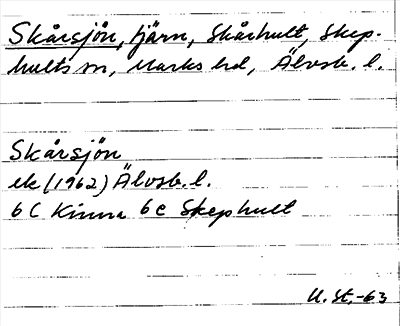 Skårsjön, tjärn, Skårhult, Skep-
hults sn, Marks hd, Älvsb. l.
Skårsjön
ek (1962) Älvsb. l.
6 C Kinna 6 e Skephult
U. St.-63